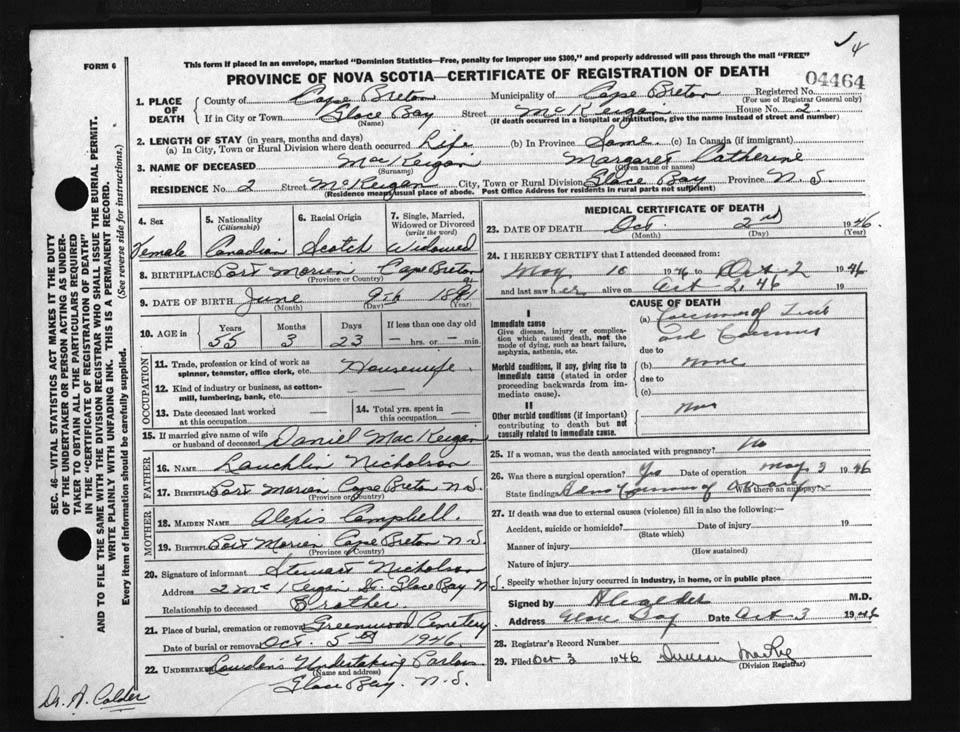 √ 4
FORM 6
This form if placed in an envelope, marked "Dominion Statistics—Free, penalty for improper use $300," and properly addressed will pass through the mail "FREE"
PROVINCE OF NOVA SCOTIA—CERTIFICATE OF REGISTRATION OF DEATH
04464
1. PLACE OF DEATH
County of Cape Breton Municipality of Cape Breton Registered No.
(For use of Registrar General only)
If in City or Town Glace Bay Street McKeigan House No. 2.
(Name) (If death occurred in a hospital or institution, give the name instead of street and number)
2. LENGTH OF STAY (in years, months and days)
(a) In City, Town or Rural Division where death occurred Life (b) In Province Same (c) In Canada (if immigrant)
3. NAME OF DECEASED MacKeigan Margaret Catherine
(Surname) (Given name or names)
RESIDENCE No. 2 Street McKeigan City, Town or Rural Division Glace Bay Province N.S.
(Residence means usual place of abode. Post Office Address for residents in rural parts not sufficient)
4. Sex
Female
5. Nationality
(Citizenship)
Canadian
6. Racial Origin
Scotch
7. Single, Married,
Widowed or Divorced
(write the word)
Widowed
8. BIRTHPLACE Port Morien Cape Breton
(Province or Country)
9. DATE OF BIRTH June 9th 1891
(Month) (Day) (Year)
10. AGE in
Years Months Days If less than one day old
55 3 23 — hrs. or — min.
OCCUPATION
11. Trade, profession or kind of work as
spinner, teamster, office clerk, etc. Housewife.
12. Kind of industry or business, as cotton-
mill, lumbering, bank, etc. —
13. Date deceased last worked
at this occupation —
14. Total yrs. spent in
this occupation —
15. If married give name of wife
or husband of deceased Daniel MacKeigan
FATHER
16. NAME Lauchlin Nicholson
17. BIRTHPLACE Port Morien Cape Breton N.S.
(Province or Country)
MOTHER
18. MAIDEN NAME Alexis Campbell.
19. BIRTHPLACE Port Morien Cape Breton N.S.
(Province or Country)
20. Signature of informant Stewart Nicholson
Address 2 McKeigan St. Glace Bay N.S.
Relationship to deceased Brother.
21. Place of burial, cremation or removal Greenwood Cemetery
Date of burial or removal Oct. 5th 1946
22. UNDERTAKER Undertaking Parlors
(Name and address)
Glace Bay. N.S.
MEDICAL CERTIFICATE OF DEATH
23. DATE OF DEATH Oct. 2nd 1946
(Month) (Day) (Year)
24. I HEREBY CERTIFY that I attended deceased from:
May 10 1946 to Oct 2 1946
and last saw her alive on Oct 2, 46 19
CAUSE OF DEATH
I
Immediate cause
Give disease, injury or complica-
tion which caused death, not the
mode of dying, such as heart failure,
asphyxia, asthenia, etc.
(a) Carcinoma of
and
due to
Morbid conditions, if any, giving rise to
immediate cause (stated in order
proceeding backwards from im-
mediate cause).
(b) none
due to
(c)
II
Other morbid conditions (if important)
contributing to death but not
causally related to immediate cause.
25. If a woman, was the death associated with pregnancy? No
26. Was there a surgical operation? Yes Date of operation May 3 1946
State findings Carcinoma of Ovary Was there an autopsy? -
27. If death was due to external causes (violence) fill in also the following:—
Accident, suicide or homicide? Date of injury 19
(State which)
Manner of injury
(How sustained)
Nature of injury
Specify whether injury occurred in industry, in home, or in public place
Signed by A Calder M.D.
Address Glace Bay Date Oct 3 1946
28. Registrar's Record Number
29. Filed Oct 3 1946 Duncan
(Division Registrar)
SEC. 46—VITAL STATISTICS ACT MAKES IT THE DUTY
OF THE UNDERTAKER OR PERSON ACTING AS UNDER-
TAKER TO OBTAIN ALL THE PARTICULARS REQUIRED
IN THE "CERTIFICATE OF REGISTRATION OF DEATH"
AND TO FILE THE SAME WITH THE DIVISION REGISTRAR WHO SHALL ISSUE THE BURIAL PERMIT.
WRITE PLAINLY WITH UNFADING INK. THIS IS A PERMANENT RECORD.
Every item of information should be carefully supplied. (See reverse side for instructions.)
Dr. A. Calder